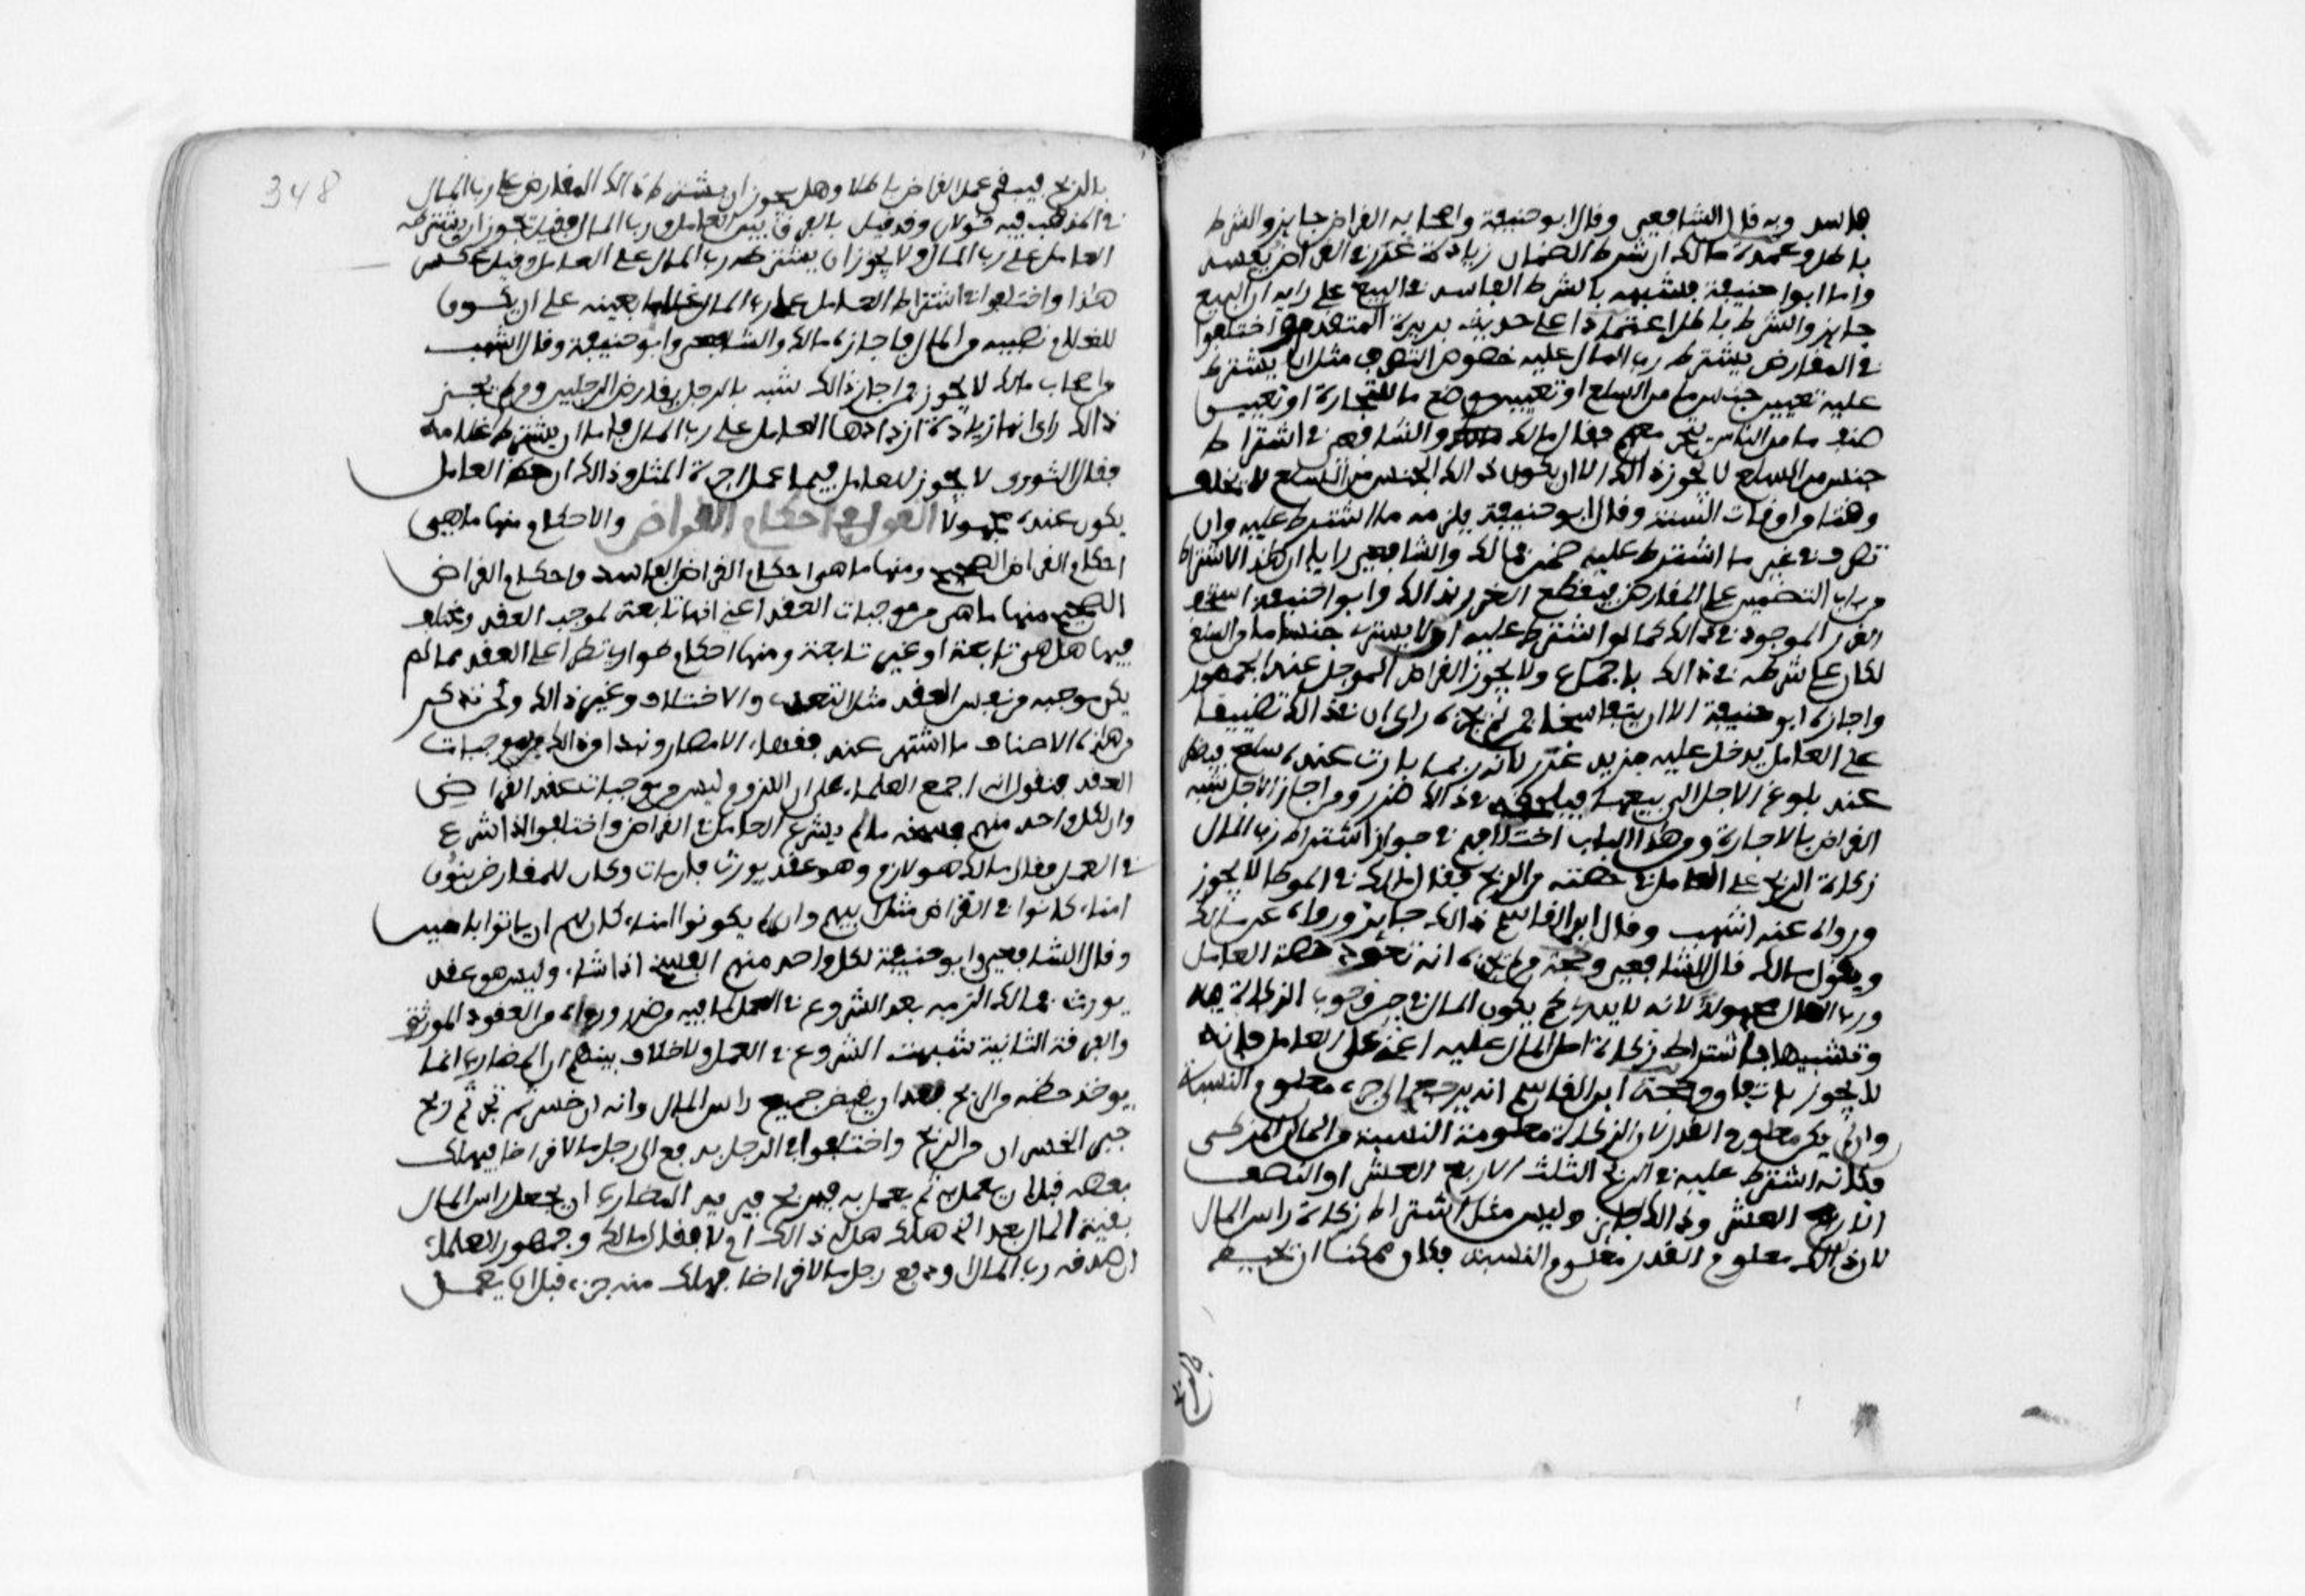 فاسد وبه قال الشافعي وقال ابو حنيفة واصحابه القراض جايز والشرط
باطل وعمدة مالك ان شرط الضمان زيادة غرر في القراض ففسد
واما ابوا حنيفة فشبهه بالشرط الفاسد في البيع على رايه ان البيع
جايز والشرط باطل اعتمادا على حديث بريرة المتقدم واختلفوا
في المقارض يشترط رب المال عليه خصوص التصرف مثل ان يشترط
عليه تعيين جنس ما من السلع او تعيين موضع ما للتجارة او تعيين
صنف ما من الناس يتجر معهم فقال مالك والشافعي في اشتراط
جنس من السلع لا يجوز ذالك الا ان يكون ذالك الجنس من السلع لا يختلف
وقتا من اوقات السنة وقال ابو حنيفة يلزمه ما اشترط عليه وان
تصرف في غير ما اشترط عليه ضمن فمالك والشافعي رايا ان هذا الاشتراط
من باب التضييق على المقارض فيعظم الغرر بذالك وابوا حنيفة استخف
الغرر الموجود في ذالك كما لو اشترط عليه ان لا يشتري جنسا ما من السلع
لكان على شرطه في ذالك باجماع ولا يجوز القراض الموجل عند الجمهور
واجازه ابو حنيفة الا ان يتفاسخا فمن لم يجزه راى ان في ذالك تضييقا
على العامل يدخل عليه مزيد غرر لانه ربما بارت عنده سلع فيضطر
عند بلوغ الاجل الى بيعها فيلحقه في ذالك ضرر ومن اجاز الاجل شبه
القراض بالاجارة ومن هذا الباب اختلافهم في جواز اشتراط رب المال
زكاة الربح على العامل في حصته من الربح فقال مالك في الموطا لا يجوز
ورواه عنه اشهب وقال ابن القاسم ذالك جايز ورواه عن مالك
وبقول مالك قال الشافعي وحجة من لم يجزه انه تعود حصة العامل
ورب المال مجهولة لانه لا يدري كم يكون المال في حين وجوب الزكاة فيه
وتشبيها باشتراط زكاة اصل المال عليه اعني على العامل فانه
لا يجوز باتفاق وحجة ابن القاسم انه يرجع الى جزء معلوم النسبة
وان لم يكن معلوم القدر لان الزكاة معلومة النسبة من المال المزكى
فكانه اشترط عليه في الربح الثلث الا ربع العشر او النصف
الا ربع العشر وذالك جايز وليس مثل اشتراط زكاة راس المال
لان ذالك معلوم القدر مغلوم النسبة فكان ممكنا ان تحيط
بالربح فيبقى عمل القراض باطلا وهل يجوز ان يشترط ذالك المقارض على رب المال
في المذهب فيه قولان وقد قيل بالفرق بين العامل ورب المال فقيل يجوز ان يشترطه
العامل على رب المال ولا يجوز ان يشترطه رب المال على العامل وقيل عكس
هذا واختلفوا في اشتراط العامل على رب المال غلاما بعينه على ان يكون
للغلام نصيبه من المال فاجازه مالك والشافعي وابو حنيفة وقال اشهب
من اصحاب مالك لا يجوز فمن اجاز ذالك شبه بالرجل يقارض الرجلين ومن لم يجز
ذالك راى انها زيادة ازدادها العامل على رب المال فاما ان يشترط غلامه
فقال الثوري لا يجوز للعامل فيما عمل اجرة المثل وذالك ان حظ العامل
يكون عنده مجهولا القول في احكام القراض والاحكام منها ماهي
احكام القراض الصحيح ومنها ما هو احكام القراض الفاسد واحكام القراض
الصحيح منها ما هي من موجبات العقد اعني انها تابعة لموجب العقد ومختلف
فيها هل هي تابعة او غير تابعة ومنها احكام طوارئ تطرا على العقد مما لم
يكن موجبه من نفس العقد مثل التعدي والاختلاف وغير ذالك ونحن نذكر
من هذه الاصناف ما اشتهر عند فقهاء الامصار ونبدا من ذالك بموجبات
العقد فنقول انه اجمع العلماء على ان اللزوم ليس من موجبات عقد القراض
وان لكل واحد منهم فسخه ما لم يشرع العامل في القراض واختلفوا اذا شرع
في العمل فقال مالك هو لازم وهو عقد يورث فان مات وكان للمقارض بنون
امناء كانوا في القراض مثل ابيهم وان لم يكونوا امناء كان لهم ان ياتوا بامين
وقال الشافعي وابو حنيفة لكل واحد منهم الفسخ اذا شاء وليس هو عقد
يورث فمالك الزمه بعد الشروع في العمل لما فيه من ضرر ورءاه من العقود الموروثة
والفرقة الثانية شبهت الشروع في العمل ولا خلاف بينهم ان المضارب انما
يوخذ حظه من الربح بعد ان يقبض جميع راس المال وانه ان خسر ثم تجر ثم ربح
جبر الخسران من الربح واختلفوا في الرجل يدفع الى رجل مالا قراضا فيهلك
بعضه قبل ان يعمل به ثم يعمل به فيربح فيريد المضارب ان يجعل راس المال
بقية المال بعد الذي هلك هل له ذالك ام لا فقال مالك وجمهور العلماء
ان صدقه رب المال او دفع رجل مالا قراضا فهلك منه جزء قبل ان يعمل
348